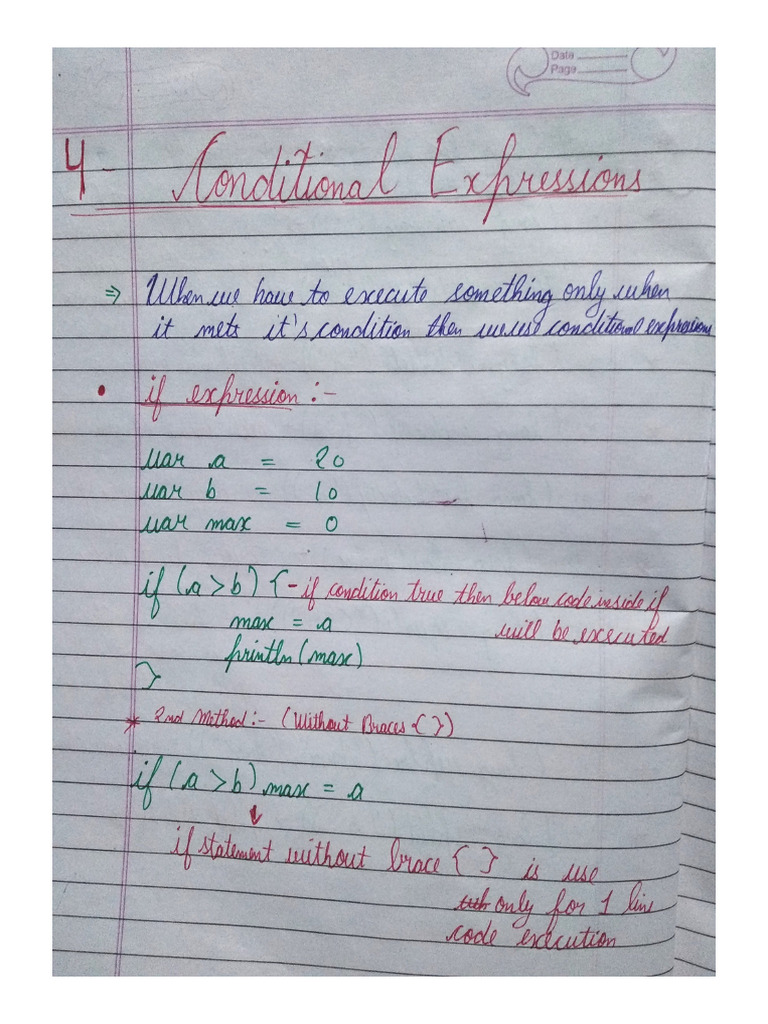 Date
Page
4- Conditional Expressions
⇒ When we have to execute something only when
it mets it's condition then we use conditional expressions
• if expression :-
var a = 20
var b = 10
var max = 0
if (a>b) { - if condition true then below code inside if
max = a will be executed
println(max)
}
* 2nd Method:- (Without Braces {})
if (a>b) max = a
if statement without brace { } is use
only for 1 line
code execution